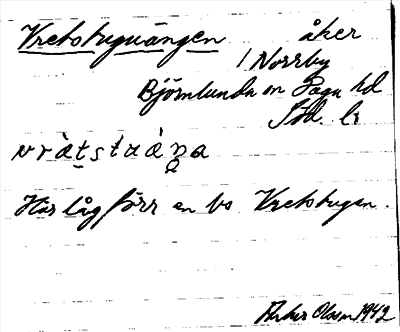 Vretstuguängen åker
i Norrby
Björnlunda sn Daga hd
Söd. ln
Här låg förr en bs Vretstugan.
Olsson 1942